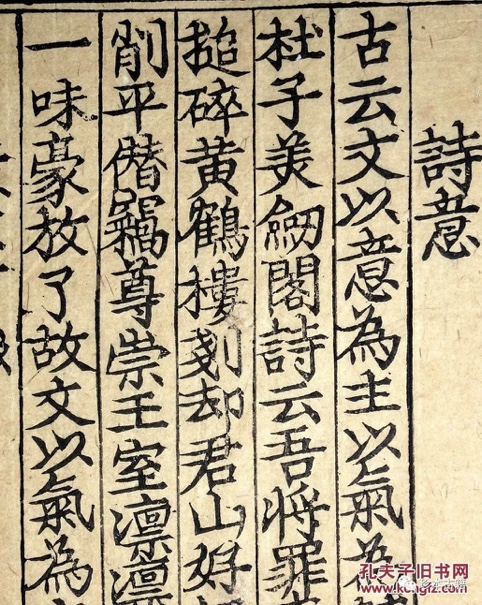 詩意
古云文以意為主以氣為
杜子美劒閣詩云吾將罪
搥碎黄鶴樓剗却君山好
削平僭竊尊崇王室凛凛
一味豪放了故文以氣為
孔夫子旧书网